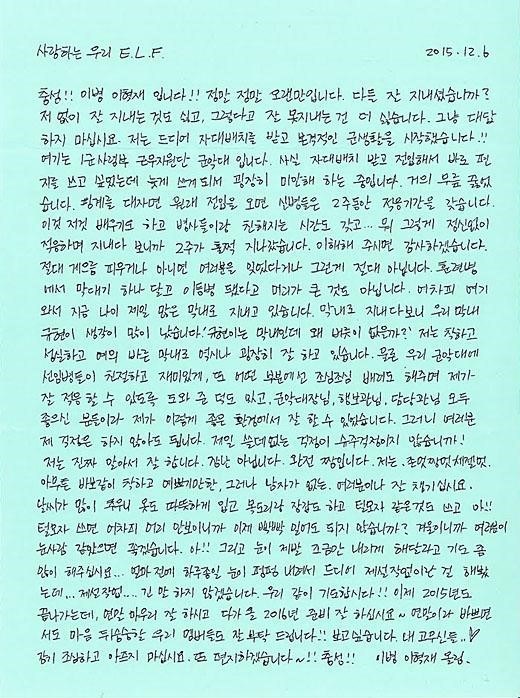 사랑하는 우리 E.L.F. 2015.12.6
충성!! 이병 이혁재 입니다!! 정말 정말 오랜만입니다. 다들 잘 지내셨습니까?
저 없이 잘 지내는 것도 싫고, 그렇다고 잘 못지내는 건 더 싫습니다. 그냥 대답
하지 마십시요. 저는 드디어 자대배치를 받고 본격적인 군생활을 시작했습니다.!!
여기는 1군사령부 근무지원단 군악대 입니다. 사실 자대배치 받고 전입해서 바로 편
지를 쓰고 싶었는데 늦게 쓰게 되서 굉장히 미안해 하는 중입니다. 거의 무릎 꿇었
습니다. 핑계를 대자면 원래 전입을 오면 신병들은 2주동안 적응기간을 갖습니다.
이것 저것 배우기도 하고 병사들이랑 친해지는 시간도 갖고... 뭐 그렇게 정신없이
적응하며 지내다 보니까 2주가 훌쩍 지나갔습니다. 이해해 주시면 감사하겠습니다.
절대 게으름 피우거나 아니면 여러분을 잊었다거나 그런게 절대 아닙니다. 훈련병
에서 막대기 하나 달고 이등병 됐다고 머리가 큰 것도 아닙니다. 어차피 여기
와서 지금 나이 제일 많은 막내로 지내고 있습니다. 막내로 지내다보니 우리 막내
규현이 생각이 많이 났습니다. '규현이는 막내인데 왜 버릇이 없을까?' 저는 착하고
성실하고 예의 바른 막내로 역시나 굉장히 잘 하고 있습니다. 물론 우리 군악대에
선임병들이 친절하고 재미있게, 또 어떤 부분에선 조심조심 배려도 해주며 제가
잘 적응 할 수 있도록 도와 준 덕도 있고, 군악대장님, 행보관님, 담당관님 모두
좋으신 분들이라 제가 이렇게 좋은 환경에서 잘 할 수 있었습니다. 그러니 여러분
제 걱정은 하지 않아도 됩니다. 제일 쓸데없는 걱정이 슈주걱정이지 않습니까!
저는 진짜 알아서 잘 합니다. 장난 아닙니다. 완전 짱입니다. 저는.
아무튼 바보같이 착하고 예쁘기만한, 그러나 남자가 없는. 여러분이나 잘 챙기십시요.
날씨가 많이 추우니 옷도 따뜻하게 입고 목도리랑 장갑도 하고 털모자 같은것도 쓰고 아!!
털모자 쓰면 어차피 머리 안보이니까 이제 빡빡 밀어도 되지 않습니까? 겨울이니까 여러분이
눈사람 같았으면 좋겠습니다. 아!! 그리고 눈이 제발 조금만 내리게 해달라고 기도 좀
많이 해주십시요... 얼마 전에 하루종일 눈이 펑펑 내려서 드디어 제설작업이란 걸 해봤
는데... 제설작업.... 긴 말 하지 않겠습니다. 우리 같이 기도합시다!! 이제 2015년도
끝나가는데, 연말 마무리 잘 하시고 다가 올 2016년 준비 잘 하십시요~ 연말이라 바쁘면
서도 마음 뒤숭숭할 우리 멤버들도 잘 부탁 드립니다!! 보고싶습니다. 내 고무신들..♥
감기 조심하고 아프지 마십시요. 또 편지하겠습니다~!! 충성!! 이병 이혁재 올림.